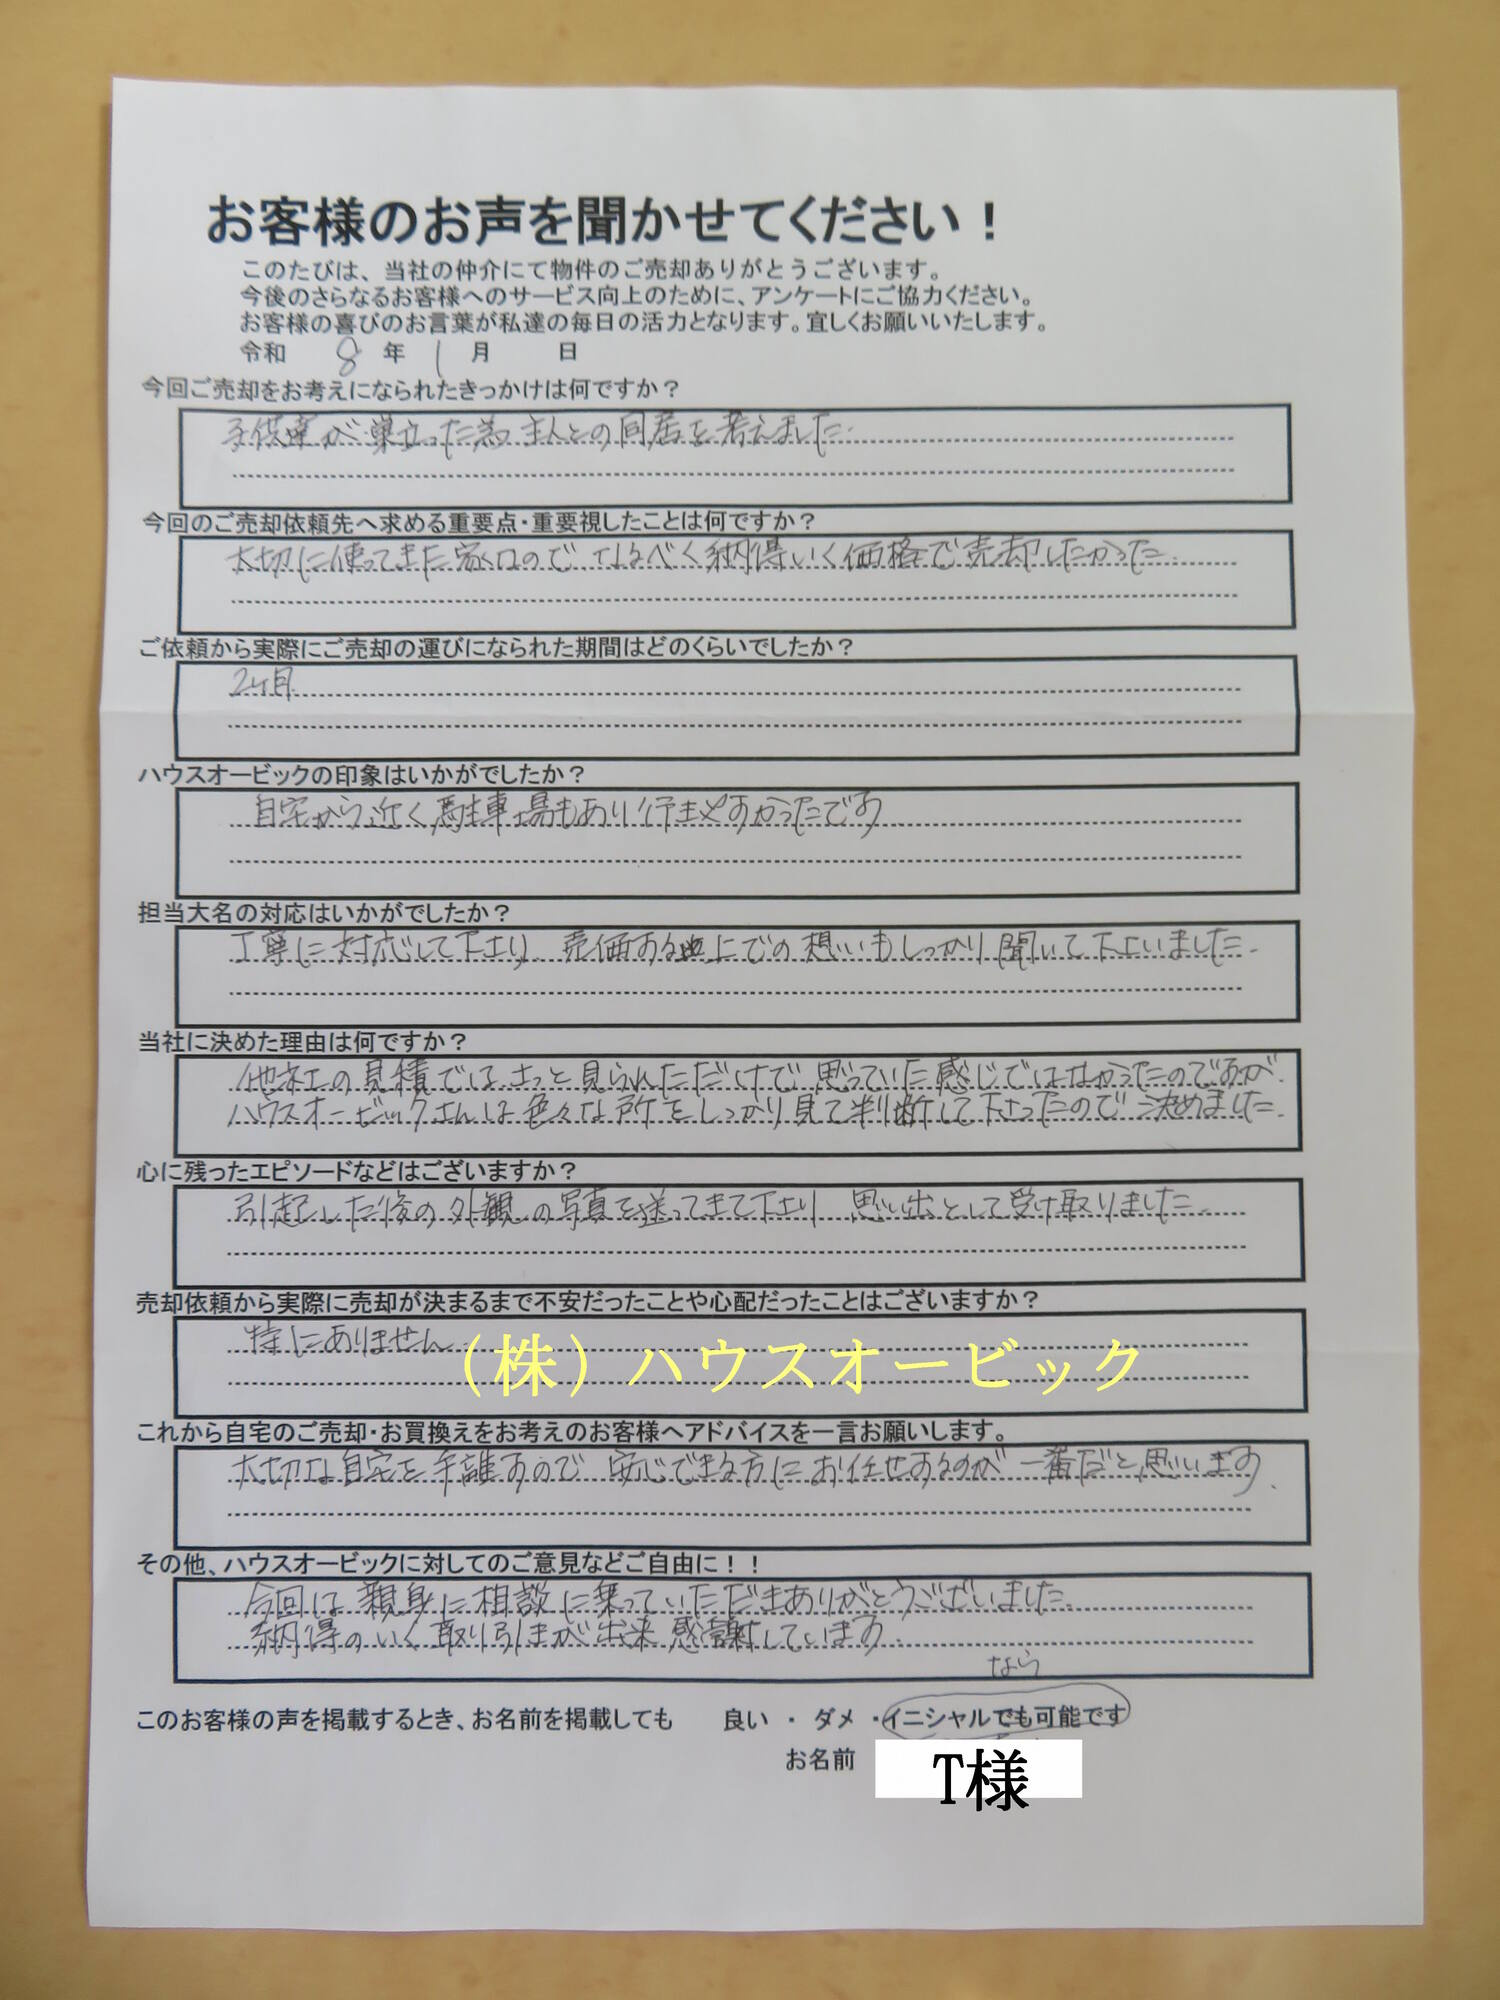 お客様のお声を聞かせてください！
このたびは、当社の仲介にて物件のご売却ありがとうございます。
今後のさらなるお客様へのサービス向上のために、アンケートにご協力ください。
お客様の喜びのお言葉が私達の毎日の活力となります。宜しくお願いいたします。
令和 8 年 1 月 日
今回ご売却をお考えになられたきっかけは何ですか？
子供達が巣立った為 主人との同居を考えました.
今回のご売却依頼先へ求める重要点・重要視したことは何ですか？
大切に使ってきた家なので なるべく納得いく価格で売却したかった.
ご依頼から実際にご売却の運びになられた期間はどのくらいでしたか？
2ヶ月.
ハウスオービックの印象はいかがでしたか？
自宅から近く駐車場もあり行きやすかったです
担当大名の対応はいかがでしたか？
丁寧に対応して下さり 売価する上での想いもしっかり聞いて下さいました.
当社に決めた理由は何ですか？
他社の見積ではさっと見られただけで思っていた感じではなかったのですが.
ハウスオービックさんは色々な所をしっかり見て判断して下さったので決めました.
心に残ったエピソードなどはございますか？
引起しした後の外観の写真を送ってきて下さり 思い出として受け取りました.
売却依頼から実際に売却が決まるまで不安だったことや心配だったことはございますか？
特にありません.
（株）ハウスオービック
これから自宅のご売却・お買換えをお考えのお客様へアドバイスを一言お願いします。
大切な自宅を手離すので 安心できる方にお任せするのが一番だと思います.
その他、ハウスオービックに対してのご意見などご自由に！！
今回は親身に相談に乗っていただきありがとうございました.
納得のいく取り引きが出来感謝しています.
なら
このお客様の声を掲載するとき、お名前を掲載しても 良い ・ ダメ ・イニシャルでも可能です
お名前 T様